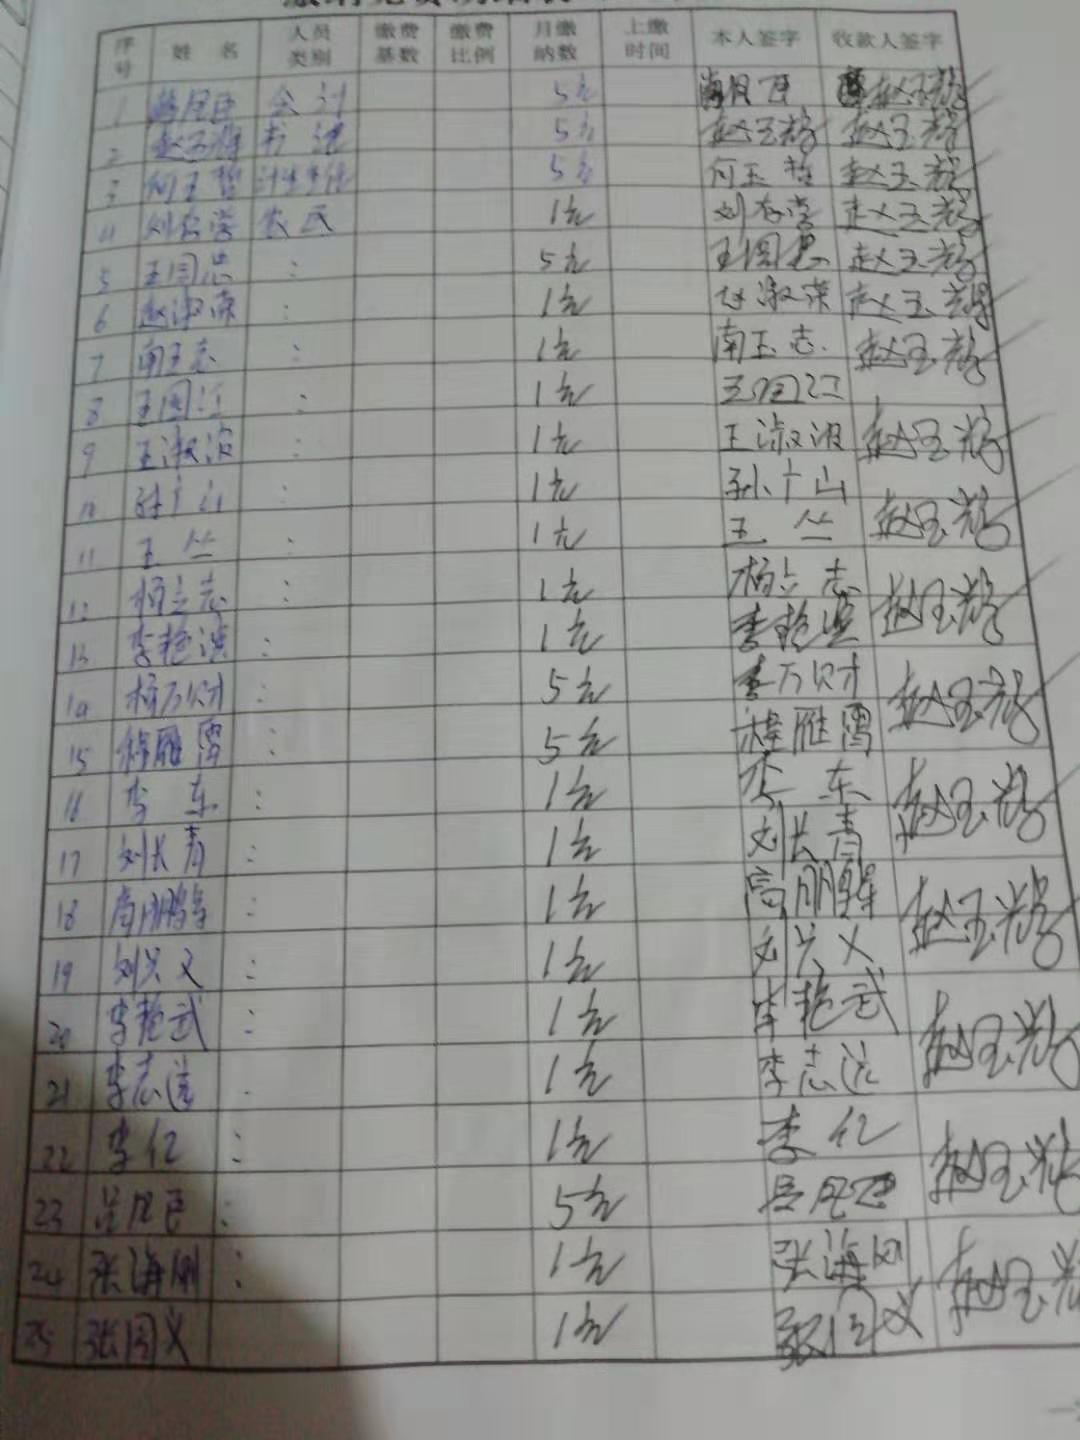 序号 姓名 人员类别 缴费基数 缴费比例 月缴纳数 上缴时间 本人签字 收款人签字
1 会计 5元 赵玉辉
2 赵玉辉 书记 5元 赵玉辉 赵玉辉
3 何玉哲 5元 何玉哲 赵玉辉
4 刘存学 农民 1元 刘存学 赵玉辉
5 王国忠 : 5元 王国忠 赵玉辉
6 赵淑荣 : 1元 赵淑荣 赵玉辉
7 南玉志 : 1元 南玉志 赵玉辉
8 王国江 : 1元 王国江
9 王淑波 : 1元 王淑波 赵玉辉
10 孙广山 : 1元 孙广山
11 王丛 : 1元 王丛 赵玉辉
12 杨立志 : 1元 杨立志
13 李艳滨 : 1元 李艳滨 赵玉辉
14 杨万财 : 5元 万财
15 雁雷 : 5元 雁雷 赵玉辉
16 李东 : 1元 李东
17 刘长青 : 1元 刘长青 赵玉辉
18 高鹏 : 1元 高鹏
19 刘兴义 : 1元 刘兴义 赵玉辉
20 李艳武 : 1元 李艳武
21 李志远 1元 李志远 赵玉辉
22 李亿 : 1元 李亿
23 吕凤臣 : 5元 吕凤臣 赵玉辉
24 张海刚 : 1元 张海刚
25 张国义 : 1元 张国义 赵玉辉